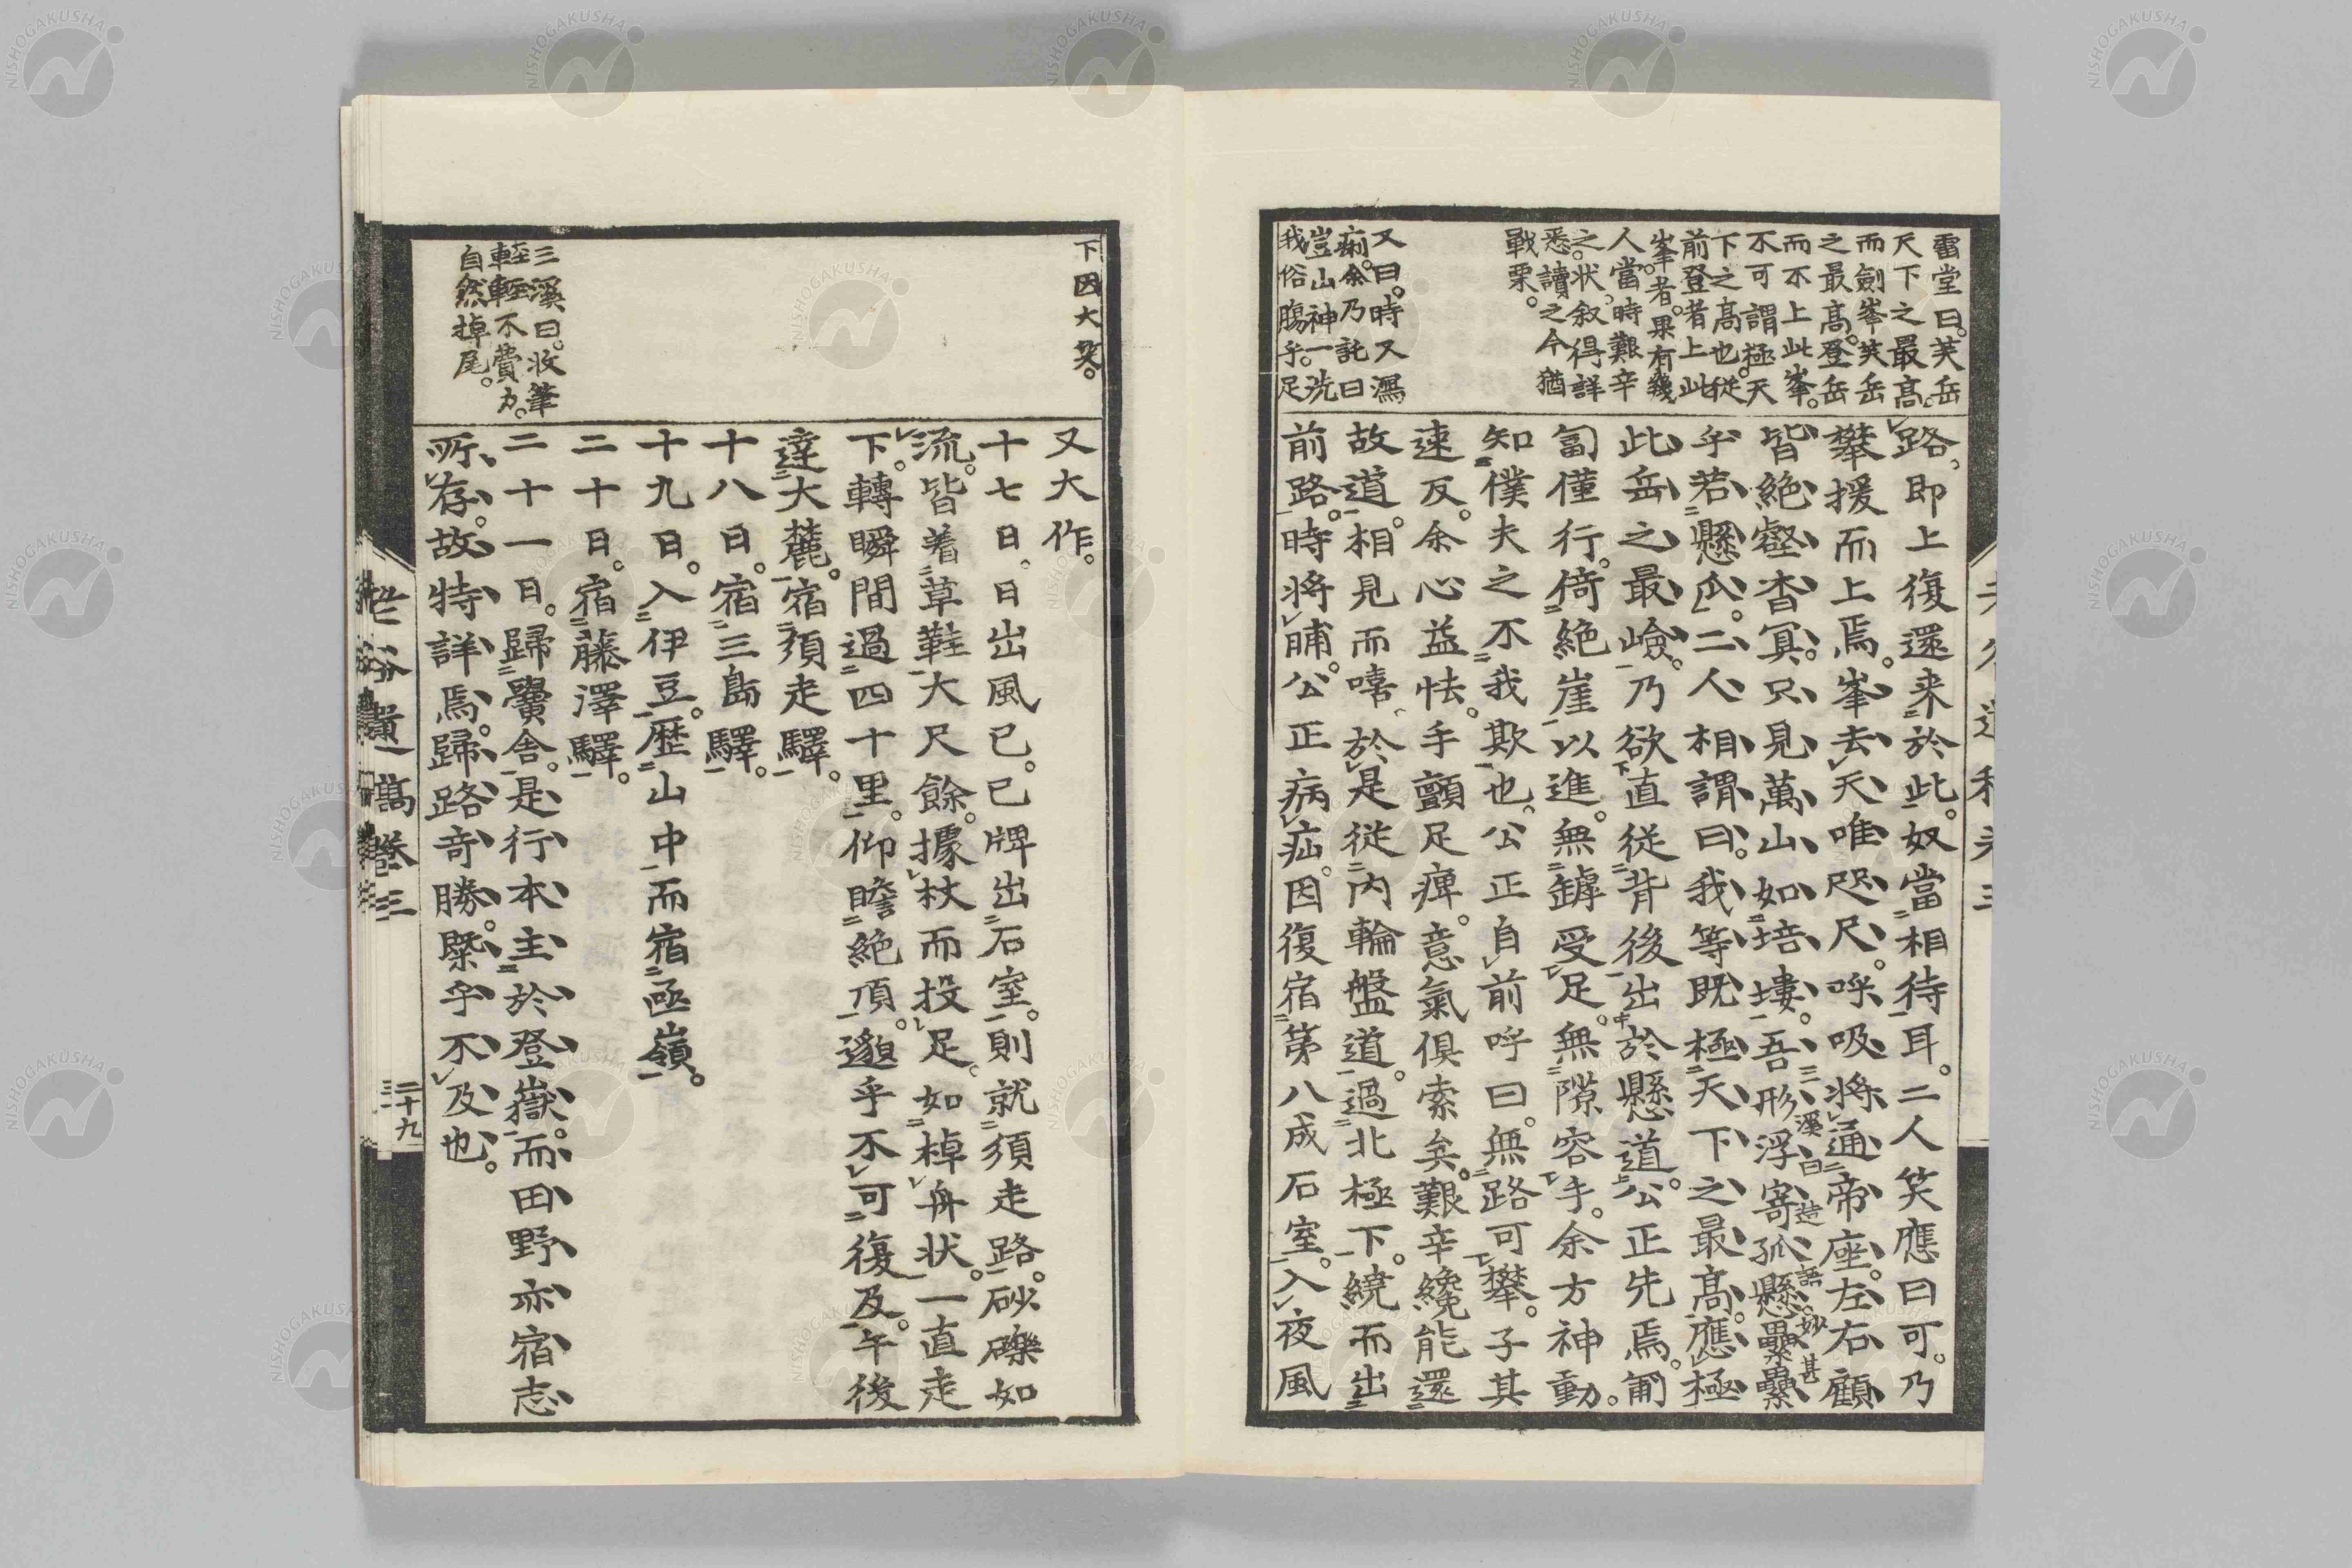 雷堂曰。芙岳
天下之最高。
而劍峯芙岳
之最高。登岳
而不上此峯。
不可謂極天
下之高也。從
前登者上此
峯者。果有幾
人。當時艱辛
之狀。叙得詳
悉。讀之今猶
戰栗。
又曰。時又瀉
痢。余乃託曰
豈山神一洗
我俗腸乎。足
路、即上復還来於此。奴當相待耳。二人笑應曰可。乃
攀援而上焉。峯去天唯咫尺。呼吸將通帝座。左右顧
皆絶壑杳冥。只見萬山如培塿。吾形浮寄孤懸纍纍
三溪曰造語。妙甚
乎若懸瓜。二人相謂曰。我等既極天下之最高。應極
此岳之最嶮。乃欲直従背後出於懸道。公正先焉。匍
匐僅行。倚絶崖以進。無罅受足。無隙容手。余方神動。
知僕夫之不我欺也。公正自前呼曰。無路可攀。子其
速反。余心益怯。手顫足痺。意氣俱索矣。艱辛纔能還
故道。相見而嘻。於是従内輪盤道。過北極下。繞而出
前路。時將晡。公正病疝。因復宿第八成石室。入夜風
下因大笑。
三溪曰。收筆
輕輕不費力。
自然掉尾。
又大作。
十七日。日出風已。已牌出石室。則就須走路。砂礫如
流。皆着草鞋大尺餘。據杖而投足。如棹舟状。一直走
下。轉瞬間過四十里。仰瞻絶頂。邈乎不可復及。午後
達大麓。宿須走驛。
十八日。宿三島驛。
十九日。入伊豆。歴山中而宿函嶺。
二十日。宿藤澤驛。
二十一日。歸黌舍。是行本主於登嶽。而田野亦宿志
所存。故特詳焉。歸路奇勝。槩乎不及也。
二十九